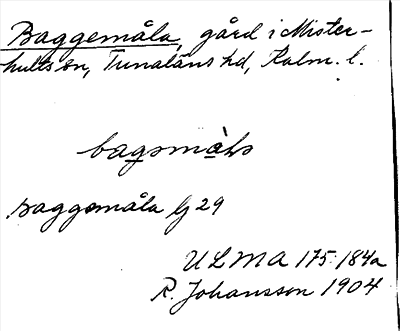 Baggemåla, gård i Mister-
hults sn, Tunaläns hd, Kalm. l.
bagsmàla
Baggemåla lj 29
ULMA 175:184a
R. Johansson 1904